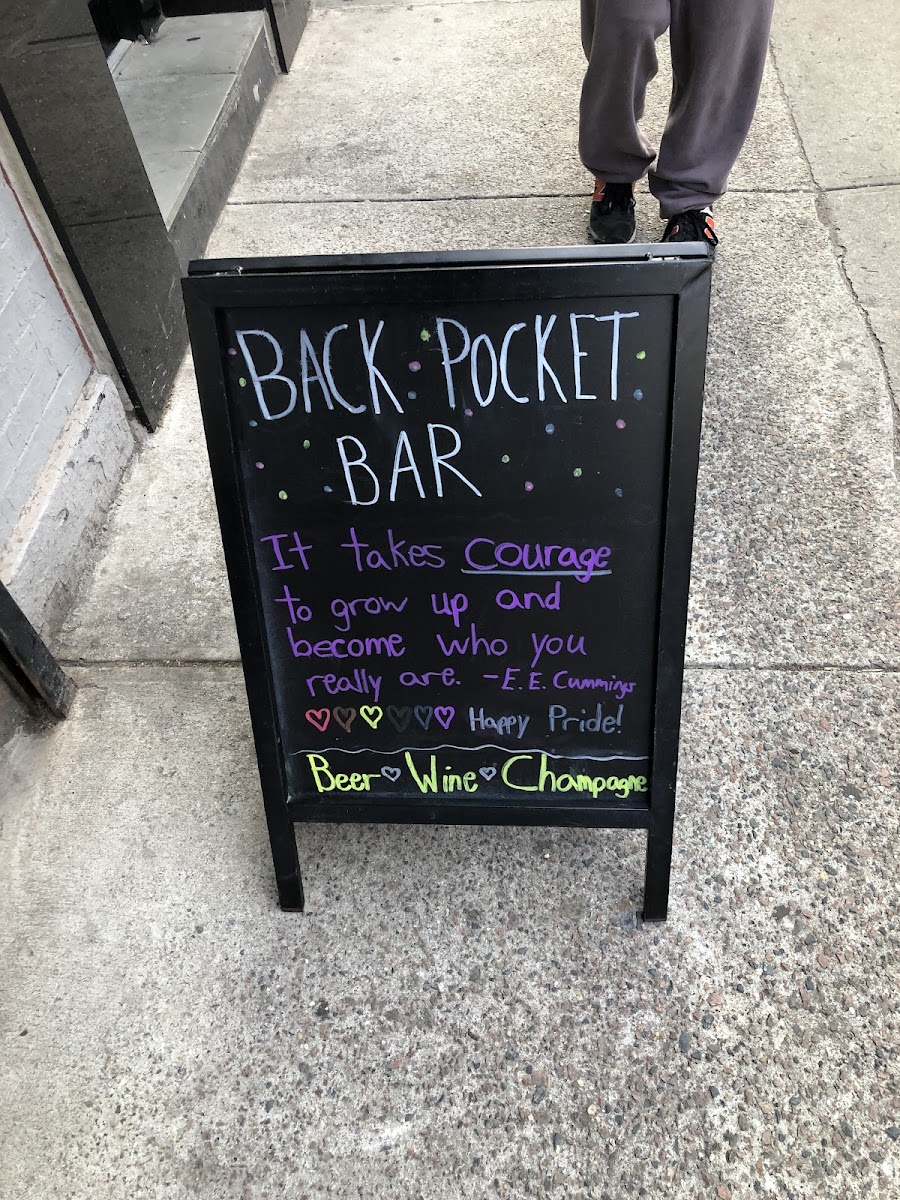 BACK POCKET
BAR
It takes courage
to grow up and
become who you
really are. - E. E. Cummings
Happy Pride!
Beer Wine Champagne